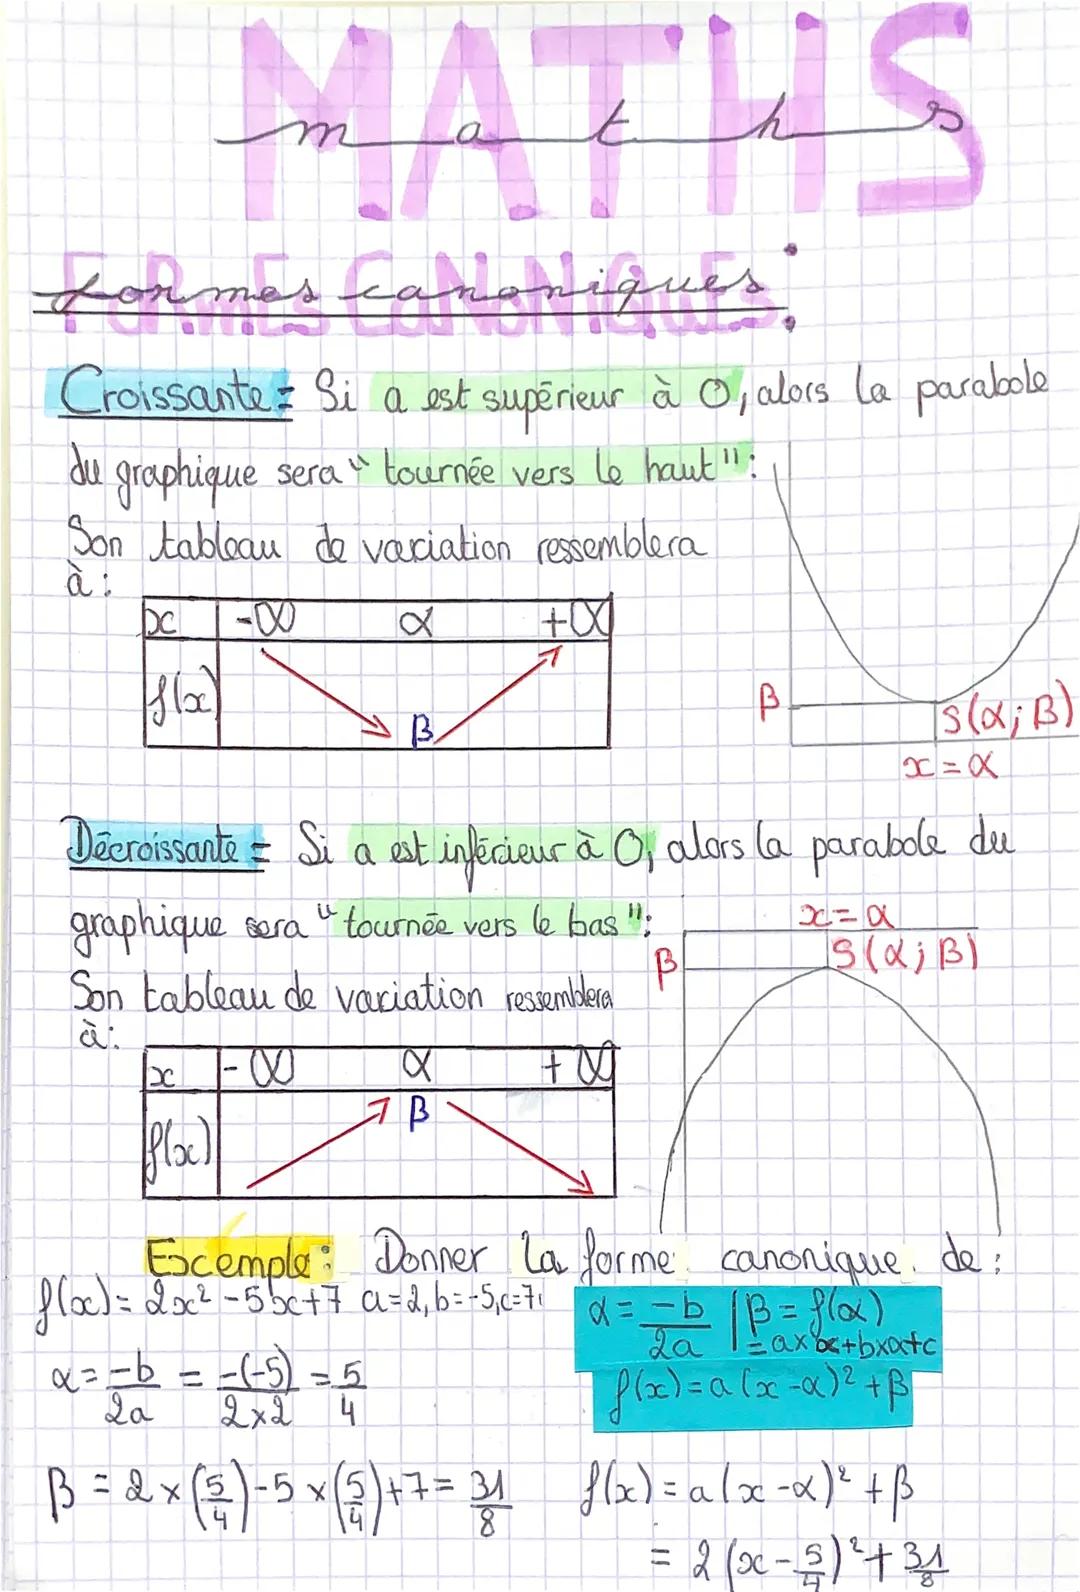 MATHS
maths
FORMES CANONIQUES
formes canoniques:
Croissante = Si a est supérieur à 0, alors la parabole
du graphique sera "tournée vers le haut":
Son tableau de variation ressemblera
à:
x -∞ α +∞
f(x) β
β S(α;β)
x=α
Décroissante = Si a est inférieur à 0, alors la parabole du
graphique sera "tournée vers le bas":
x=α
β S(α;β)
Son tableau de variation ressemblera
à:
x -∞ α +∞
f(x) β
Exemple: Donner la forme canonique de:
f(x)= 2x²-5x+7 a=2, b=-5, c=7
α = -b/2a | β = f(α)
= a×α+b×α+c
f(x)=a(x-α)²+β
α = -b/2a = -(-5)/2×2 = 5/4
β = 2×(5/4)-5×(5/4)+7 = 31/8
f(x) = a(x-α)²+β
= 2(x-5/4)²+31/8